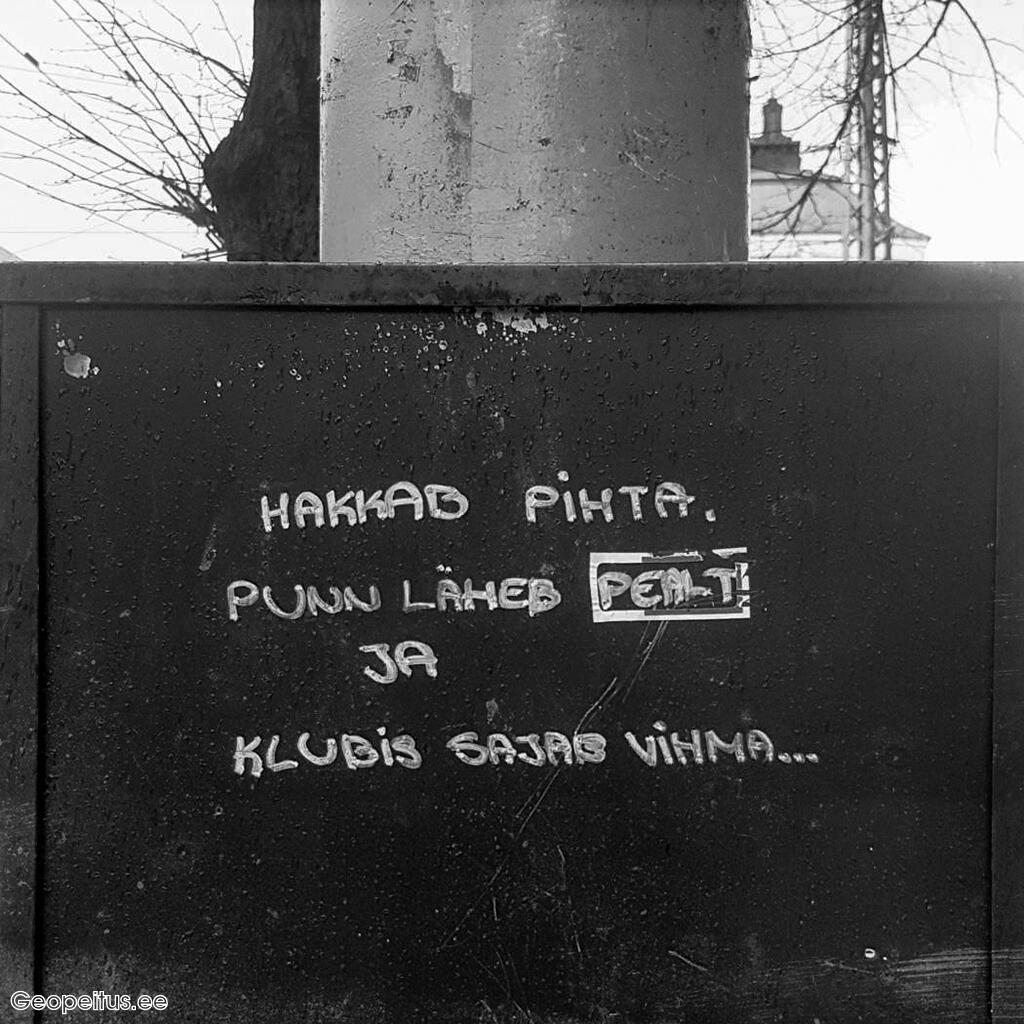 HAKKAB PIHTA.
PUNN LÄHEB PEALT
JA
KLUBIS SAJAB VIHMA...
Geopeitus.ee